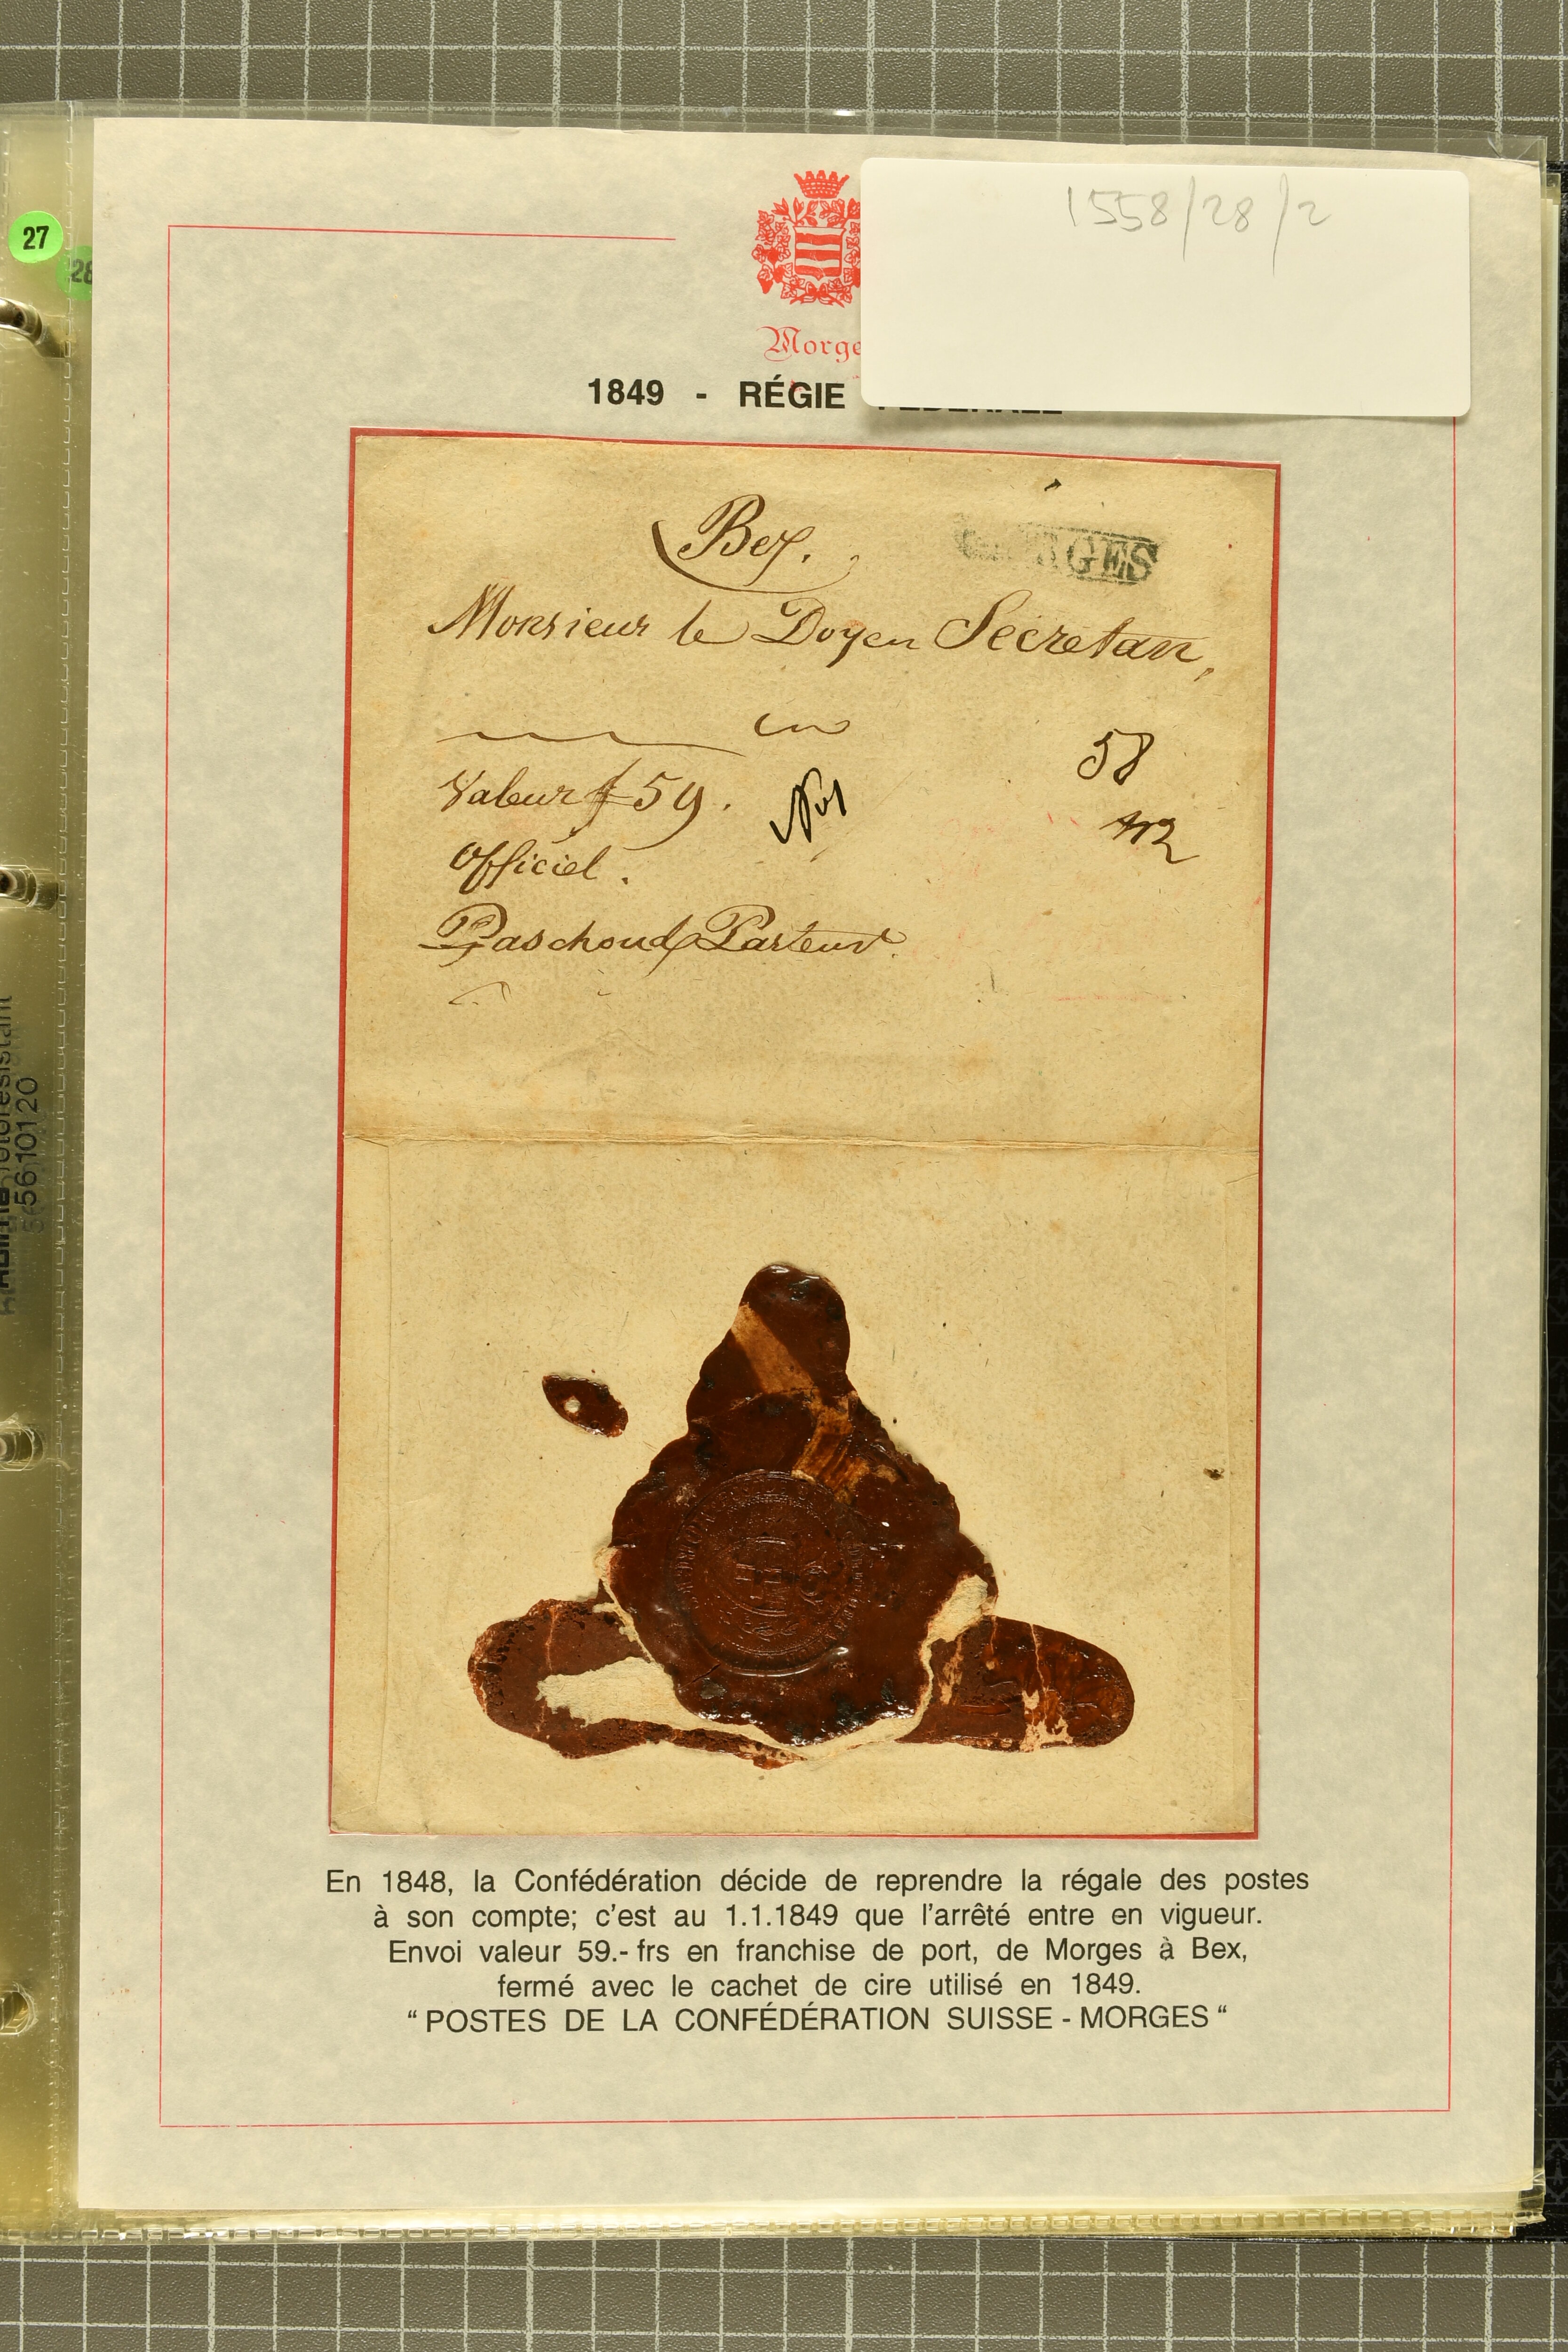 1558/28/2
27
28
Morge
1849 - RÉGIE FÉDÉRALE
Bex.
MORGES
Monsieur le Doyen Secretan,
58
Valeur f 59.
Officiel.
Paschoud Pasteur.
5610120
En 1848, la Confédération décide de reprendre la régale des postes
à son compte; c'est au 1.1.1849 que l'arrêté entre en vigueur.
Envoi valeur 59.- frs en franchise de port, de Morges à Bex,
fermé avec le cachet de cire utilisé en 1849.
“ POSTES DE LA CONFÉDÉRATION SUISSE - MORGES “